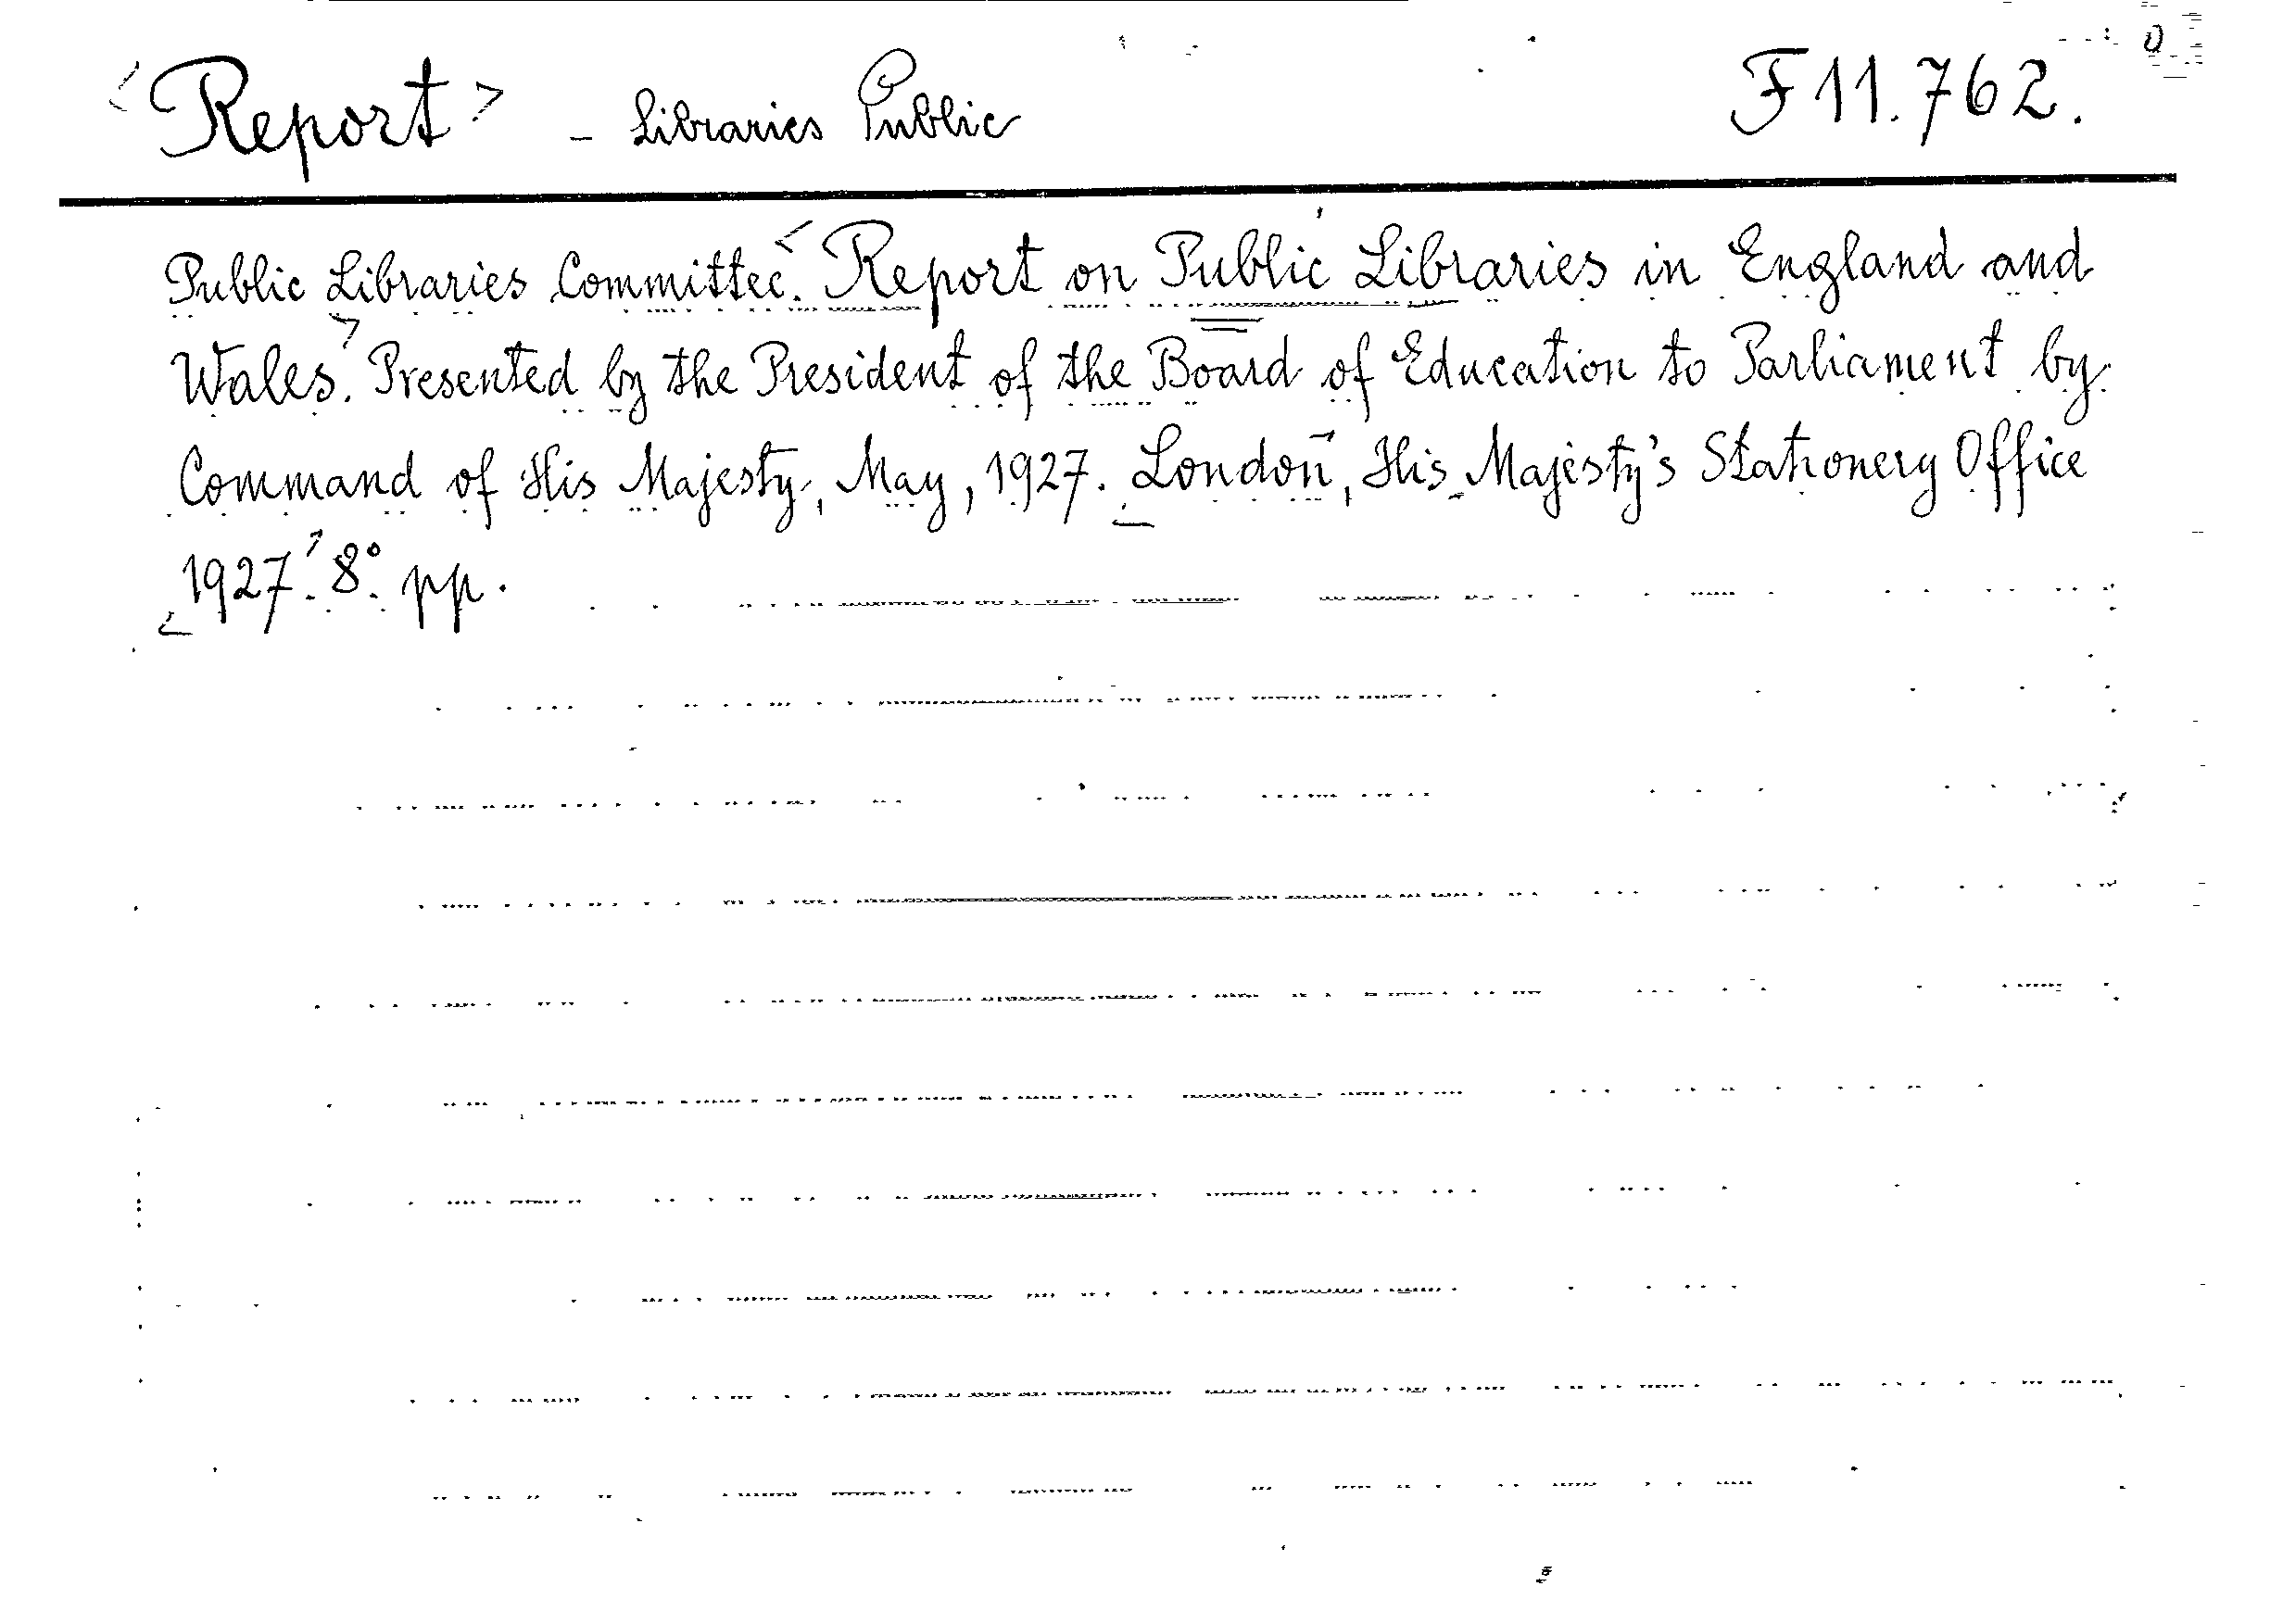 <Report> - Libraries Public F 11.762.
Public Libraries Committee. <Report on Public Libraries in England and
Wales.> Presented by the President of the Board of Education to Parliament by
Command of His Majesty, May, 1927. London, His Majesty's Stationery Office
1927. 8° pp.